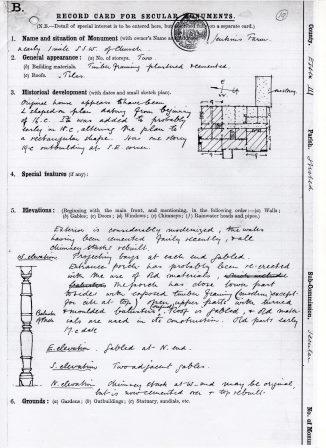 B.
RECORD CARD FOR SECULAR MONUMENTS.
(N.B.—Detail of special interest is to be entered here, but on a separate card.)
1. Name and situation of Monument (with owner's Name and Jenkins Farm
nearly 1 mile S.S.W. of Church
2. General appearance: (a) No. of storeys. Two
(b) Building materials. Timber framing plastered & cemented
(c) Roofs. Tiles
3. Historical development (with dates and small sketch plan).
Original home appears to have been
L shaped on plan dating from beginning
of 16 C. It was added to probably
early in 17 C, altering the plan to
a rectangular shape. Has one storey
outbuilding at S.E. corner.
4. Special features (if any):
5. Elevations: (Beginning with the main front, and mentioning, in the following order:—(a) Walls;
(b) Gables; (c) Doors; (d) Windows; (e) Chimneys; (f) Rainwater heads and pipes.)
Exterior is considerably modernized, the
having been cemented fairly recently, & all
chimney stacks rebuilt.
W. elevation Projecting bays at each end gabled.
Entrance porch has probably been re-erected
with the use of old materials,
the porch has close lower part
to sides with exposed timber framing (modern, except
for at top) open upper parts with turned
& moulded balusters. Roof is gabled, & old
are used in its construction. Old parts early
17 c date
E. elevation Gabled at N. end.
S. elevation Two adjacent gables.
N. elevation Chimney stack at W. end may be original,
but is now cemented over & top rebuilt.
6. Grounds: (a) Gardens; (b) Outbuildings; (c) Statuary, sundials, etc.
County.
Essex III
Parish.
Sub-Commission.
Secular
No. of Monu